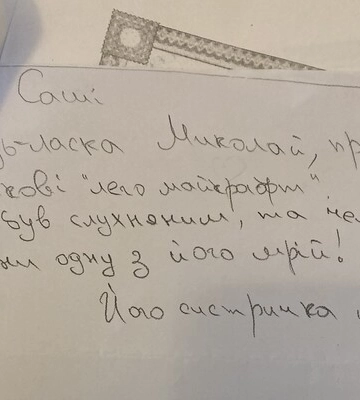 Саші
дь-ласка Миколай, пр
кові "лего майкрафт"
був слухняним, та че
ни одну з його мрій!
Його систричка